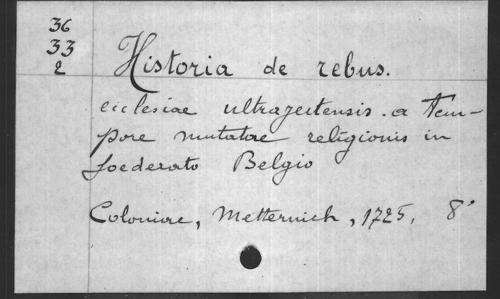 36
33
2
Historia de rebus.
ecclesiae ultrajectensis. a tem-
pore mutatae religionis in
foederato Belgio
Coloniae, Metternich, 1725, 8°